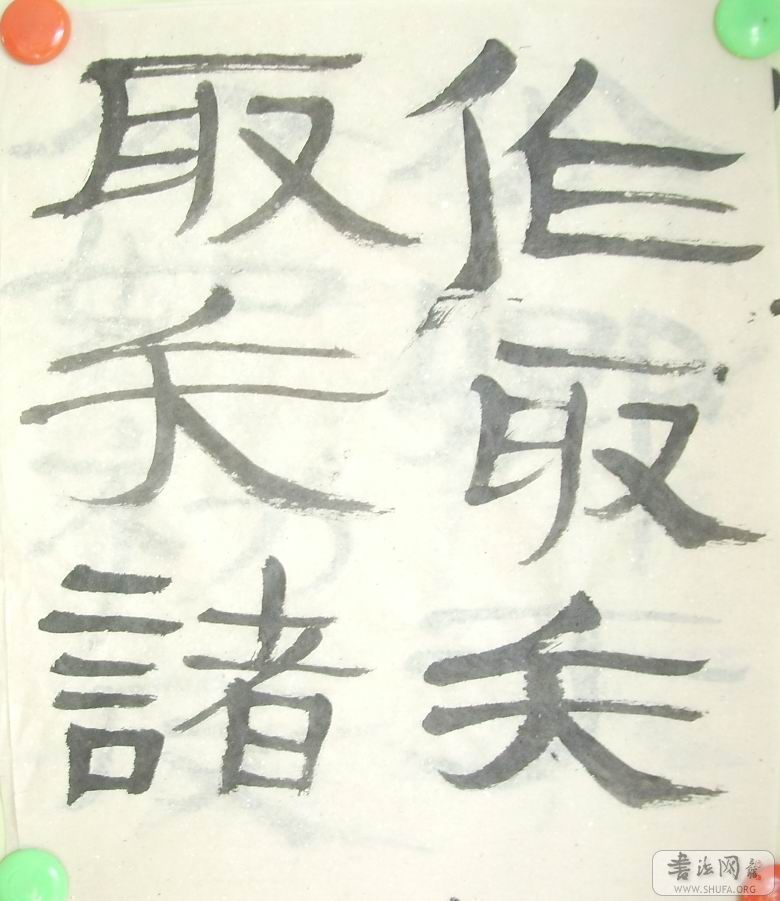 作取矢
取矢諸
書法网
WWW.SHUFA.ORG